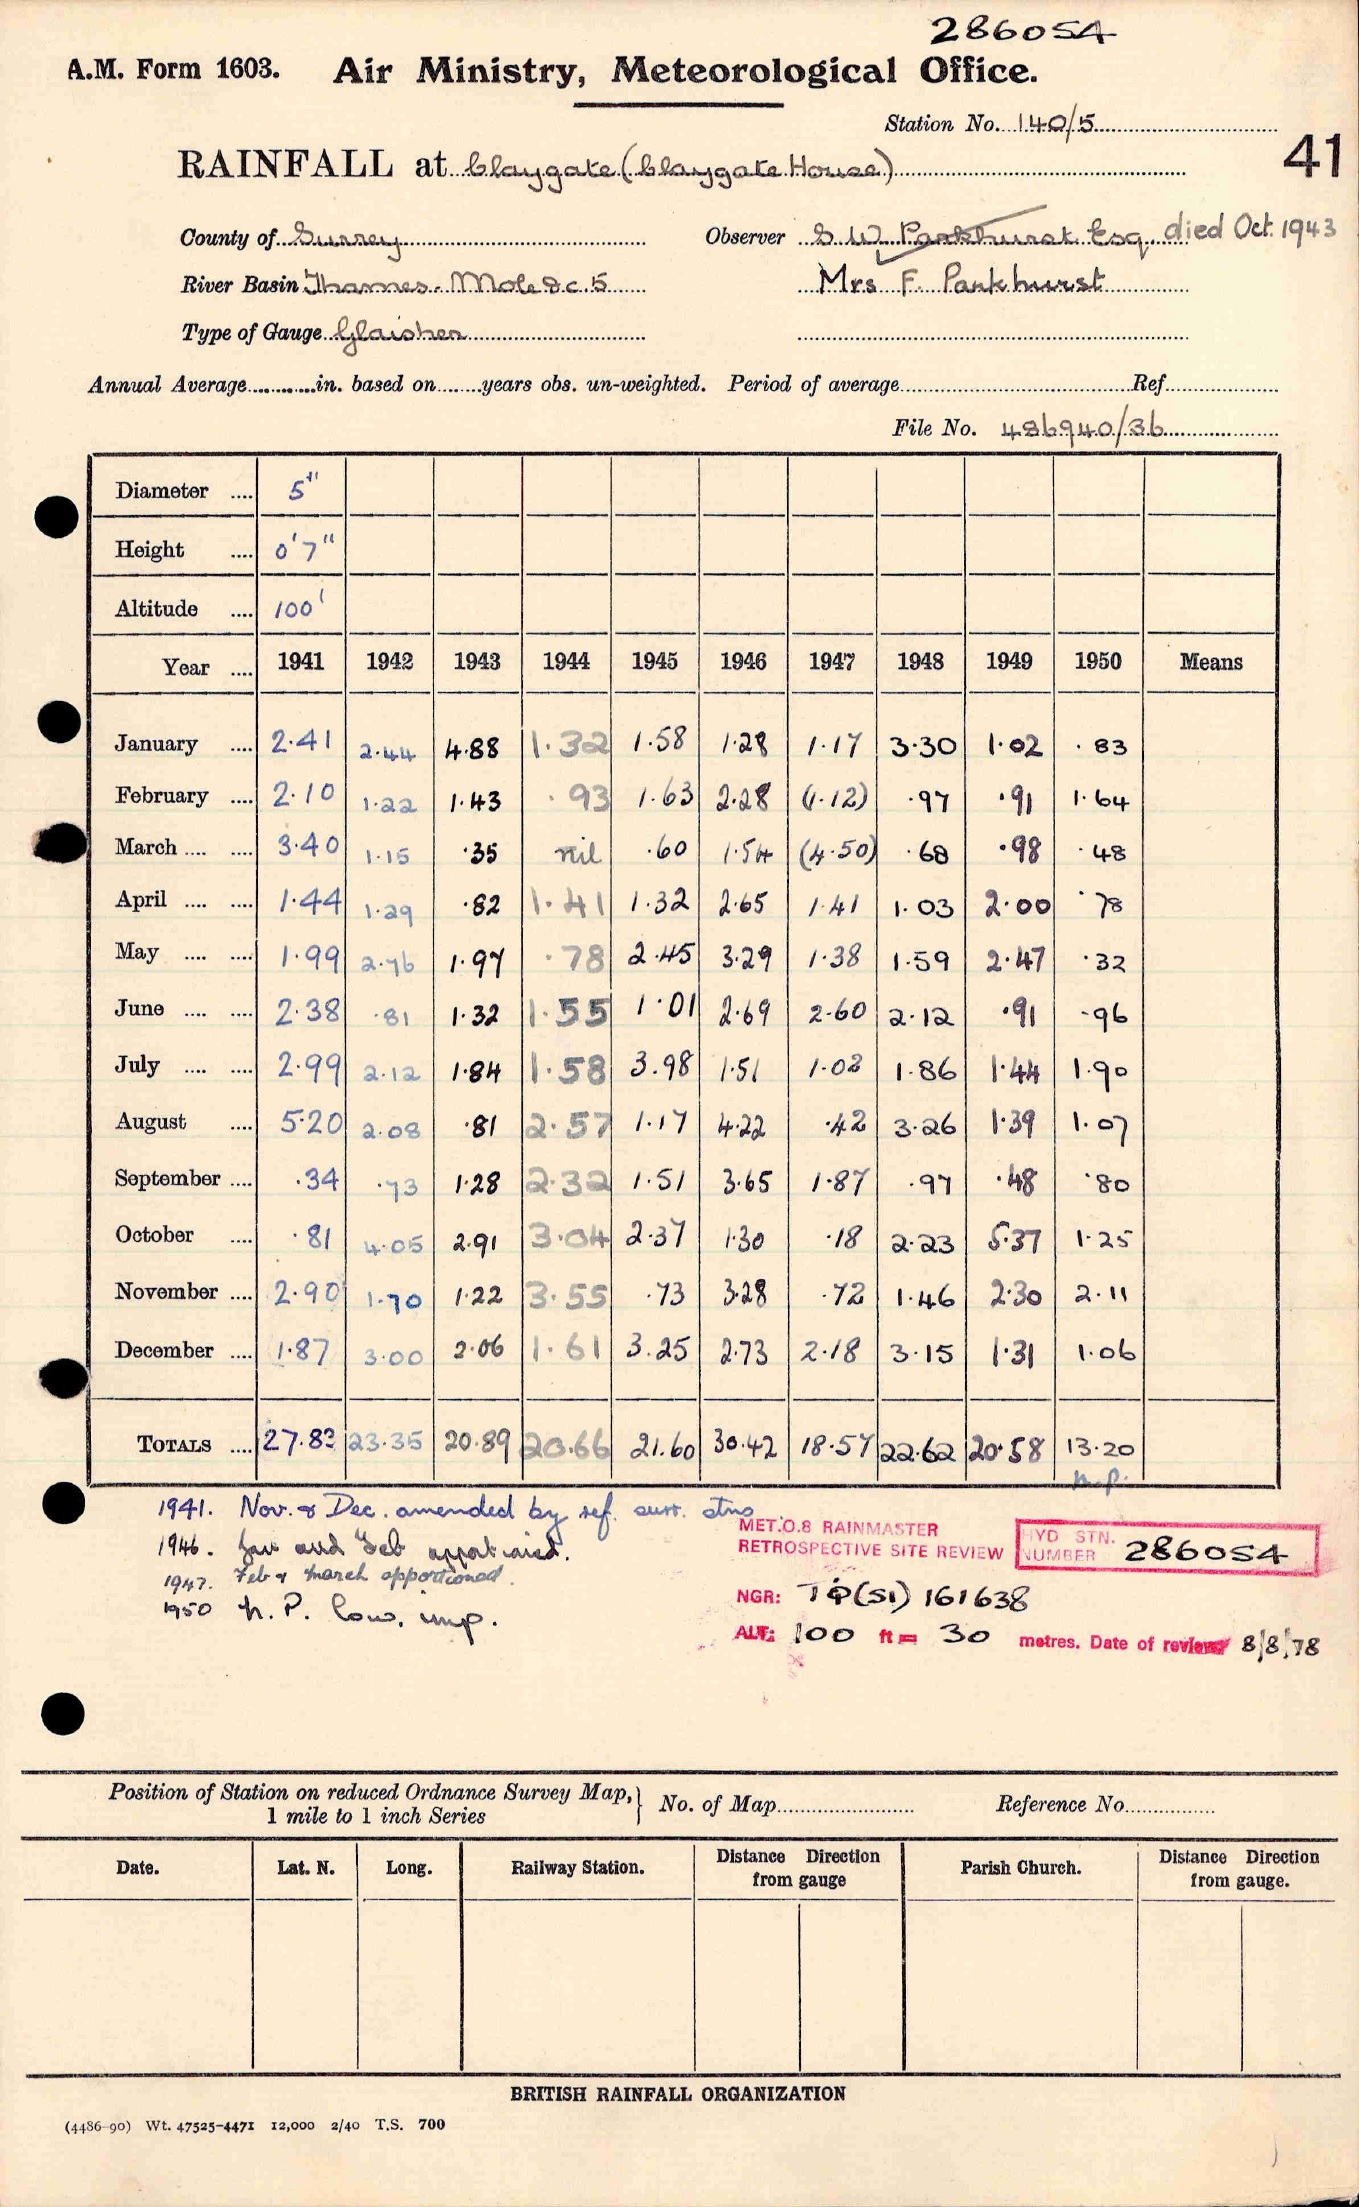 286054
A.M. Form 1603. Air Ministry, Meteorological Office.
Station No. 140/5
41
RAINFALL at Claygate (Claygate House)
County of Surrey Observer G W Parkhurst Esq died Oct. 1943
River Basin Thames. Mole &c. 5 Mrs F. Parkhurst
Type of Gauge Glaisher
Annual Average in. based on years obs. un-weighted. Period of average Ref
File No. 486940/36
Diameter .... 5"
Height .... 0'7"
Altitude .... 100'
Year .... 1941 1942 1943 1944 1945 1946 1947 1948 1949 1950 Means
January .... 2.41 2.44 4.88 1.32 1.58 1.28 1.17 3.30 1.02 .83
February .... 2.10 1.22 1.43 .93 1.63 2.28 (1.12) .97 .91 1.64
March .... .... 3.40 1.15 .35 nil .60 1.54 (4.50) .68 .98 .48
April .... .... 1.44 1.29 .82 1.41 1.32 2.65 1.41 1.03 2.00 .78
May .... .... 1.99 2.76 1.97 .78 2.45 3.29 1.38 1.59 2.47 .32
June .... .... 2.38 .81 1.32 1.55 1.01 2.69 2.60 2.12 .91 .96
July .... .... 2.99 2.12 1.84 1.58 3.98 1.51 1.02 1.86 1.44 1.90
August .... 5.20 2.08 .81 2.57 1.17 4.22 .42 3.26 1.39 1.07
September .... .34 .73 1.28 2.32 1.51 3.65 1.87 .97 .48 .80
October .... .81 4.05 2.91 3.04 2.37 1.30 .18 2.23 5.37 1.25
November .... 2.90 1.70 1.22 3.55 .73 3.28 .72 1.46 2.30 2.11
December .... 1.87 3.00 2.06 1.61 3.25 2.73 2.18 3.15 1.31 1.06
TOTALS .... 27.83 23.35 20.89 20.66 21.60 30.42 18.57 22.62 20.58 13.20
n.p.
1941. Nov. & Dec. amended by ref. surr. stns.
1946. Jan and Feb apportioned.
1947. Feb & March apportioned.
1950 N. P. low. imp.
MET.O.8 RAINMASTER
RETROSPECTIVE SITE REVIEW
HYD STN. NUMBER 286054
NGR: TQ(51) 161638
ALT: 100 ft = 30 metres. Date of review 8/8/78
Position of Station on reduced Ordnance Survey Map, 1 mile to 1 inch Series } No. of Map Reference No.
Date. Lat. N. Long. Railway Station. Distance Direction from gauge Parish Church. Distance Direction from gauge.
BRITISH RAINFALL ORGANIZATION
(4486-90) Wt. 47525-4471 12,000 2/40 T.S. 700